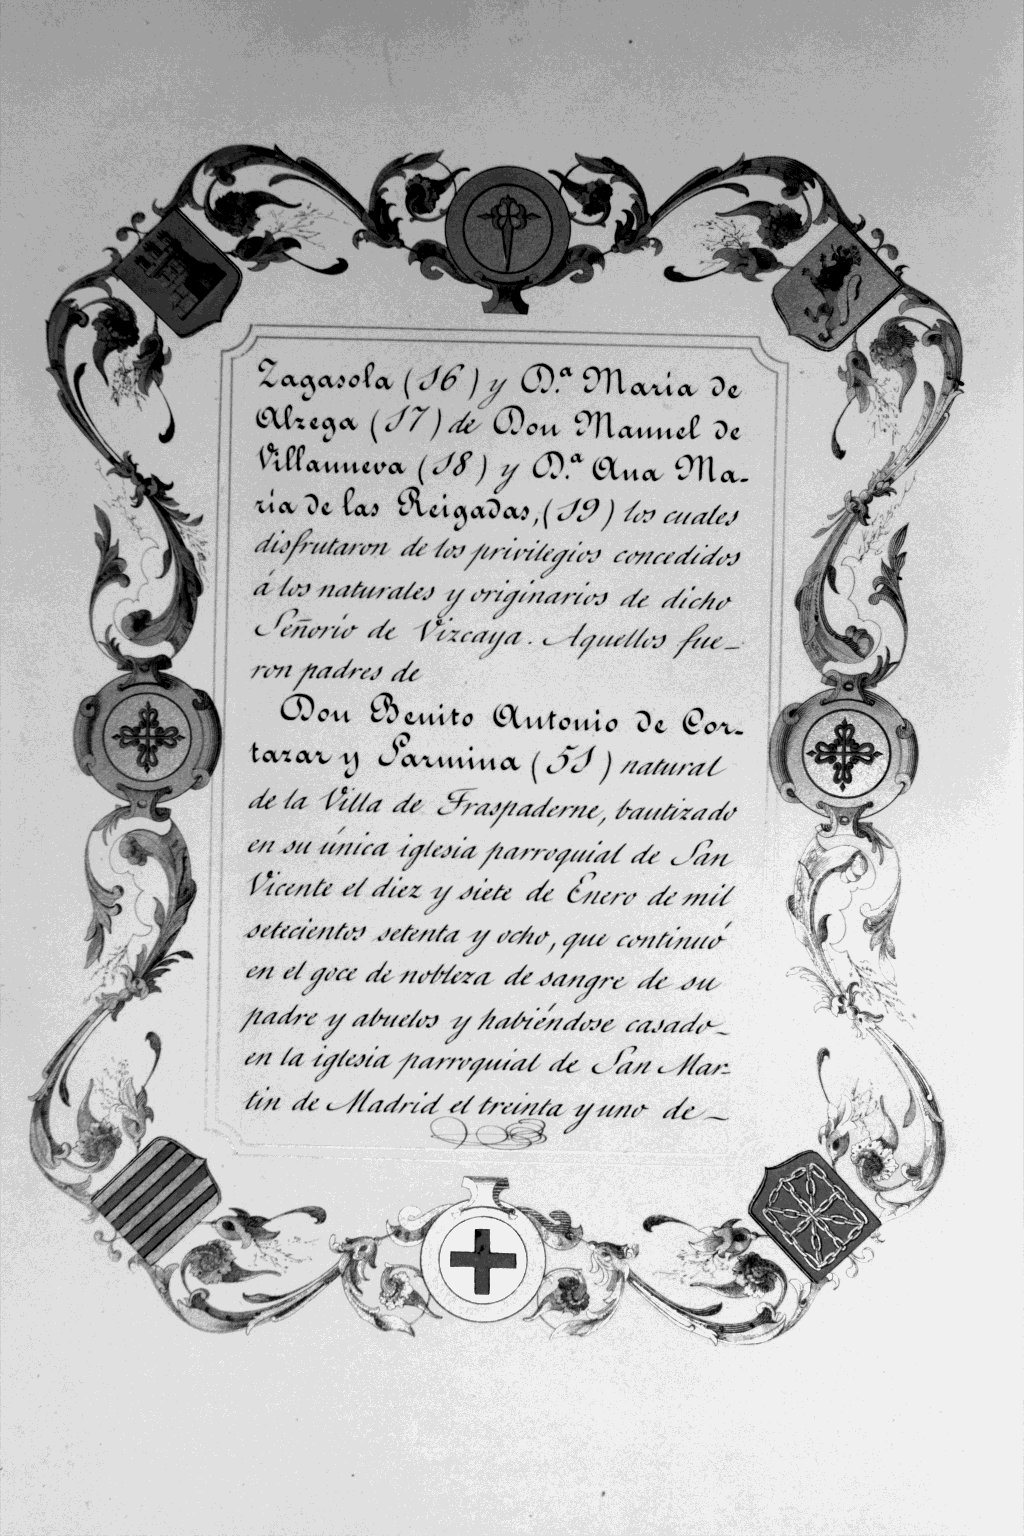 Zagasola (16) y D.ª Maria de
Alzega (17) de Don Manuel de
Villanueva (18) y D.ª Ana Ma-
ria de las Reigadas, (19) los cuales
disfrutaron de los privilegios concedidos
á los naturales y originarios de dicho
Señorío de Vizcaya. Aquellos fue-
ron padres de
Don Benito Antonio de Cor-
tazar y Sarmina (51) natural
de la Villa de Fraspaderne, bautizado
en su única iglesia parroquial de San
Vicente el diez y siete de Enero de mil
setecientos setenta y ocho, que continuó
en el goce de nobleza de sangre de su
padre y abuelos y habiéndose casado
en la iglesia parroquial de San Mar-
tin de Madrid el treinta y uno de